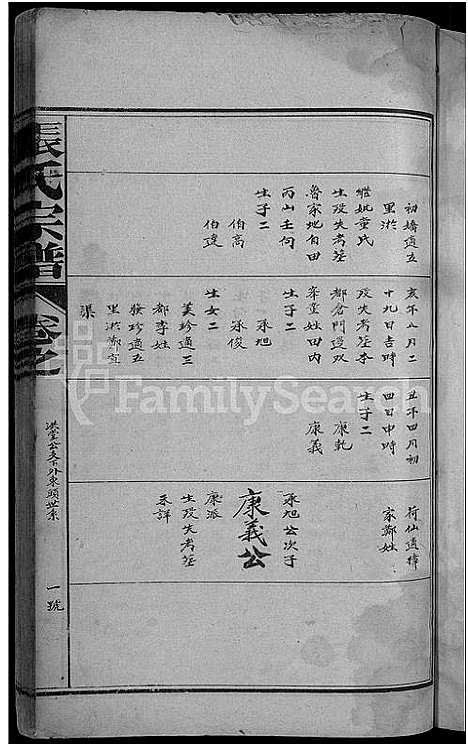 初媾適五
里㳂
繼妣童氏
生歿失考塟
魯家地自田
丙山壬向
生子二
伯高
伯達
亥年八月二
十九日吉時
歿失考塟李
都倉門邊双
峯堂姓田內
生子二
承旭
承俊
生女二
美珍適三
都李姓
發珍適五
里㳂鄭宣
渠
丑年四月初
四日申時
生子二
康乾
康義
荷仙適樟
家鄭姓
承旭公次子
康義公
康派
生歿失考塟
未詳
張氏宗譜
卷之
洪堂公支下外東頭世系
一號
FamilySearch